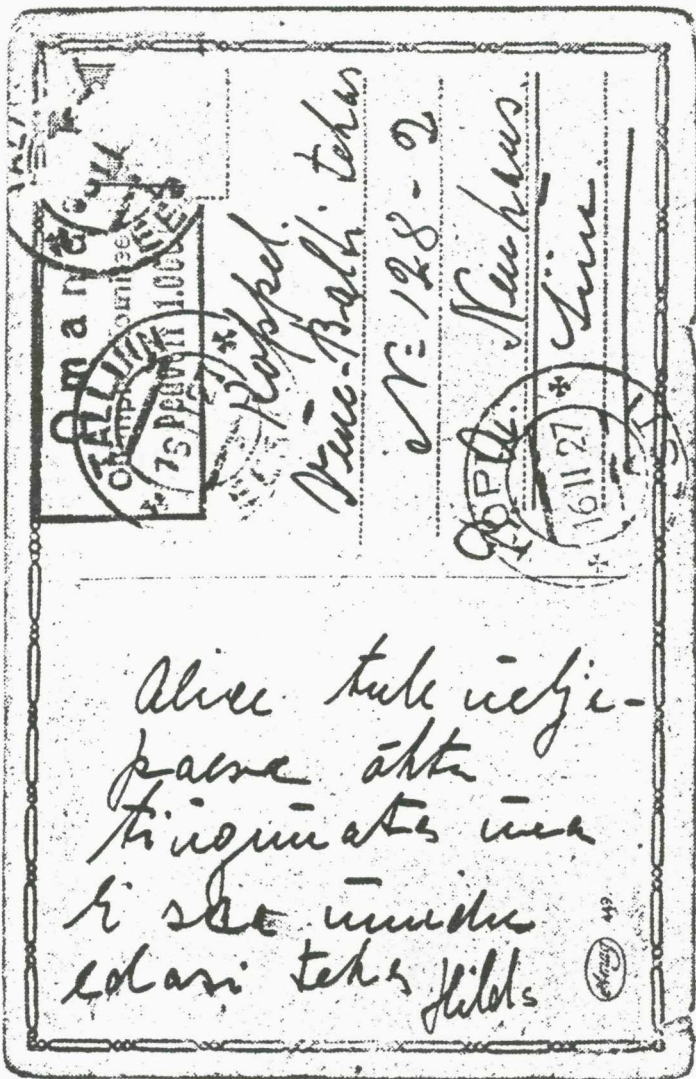 Omanda
TALLINN
Koppel.
Vene-Balti tehas
N= 128-2
Neuhaus
Siin.
KOPLI.
16 II 27
Alice tule nelja-
paeva õhtu
tingimata ma
ei saa muidu
edasi teha Hilda
449.